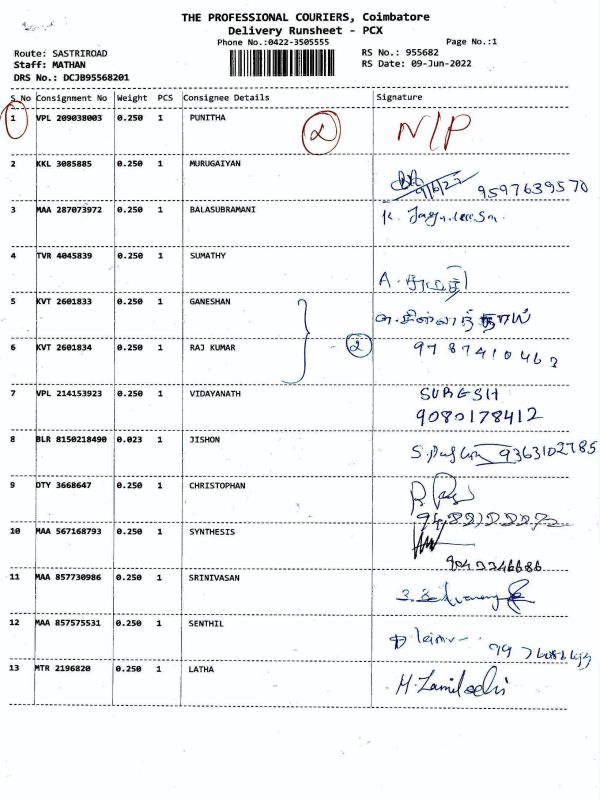 THE PROFESSIONAL COURIERS, Coimbatore
Delivery Runsheet - PCX
Phone No.:0422-3505555 Page No.:1
Route: SASTRIROAD RS No.: 955682
Staff: MATHAN RS Date: 09-Jun-2022
DRS No.: DCJB95568201
S No Consignment No Weight PCS Consignee Details Signature
1 VPL 209038003 0.250 1 PUNITHA 2 N/P
2 KKL 3085885 0.250 1 MURUGAIYAN
9/6/22 9597639570
3 MAA 287073972 0.250 1 BALASUBRAMANI K.
4 TVR 4045839 0.250 1 SUMATHY
A. சுமதி
5 KVT 2601833 0.250 1 GANESHAN
6 KVT 2601834 0.250 1 RAJ KUMAR 2
7 VPL 214153923 0.250 1 VIDAYANATH SURESH
9080178412
8 BLR 8150218490 0.023 1 JISHON
S. 9363102785
9 DTY 3668647 0.250 1 CHRISTOPHAN
10 MAA 567168793 0.250 1 SYNTHESIS
11 MAA 857730986 0.250 1 SRINIVASAN
12 MAA 857575531 0.250 1 SENTHIL
13 MTR 2196820 0.250 1 LATHA